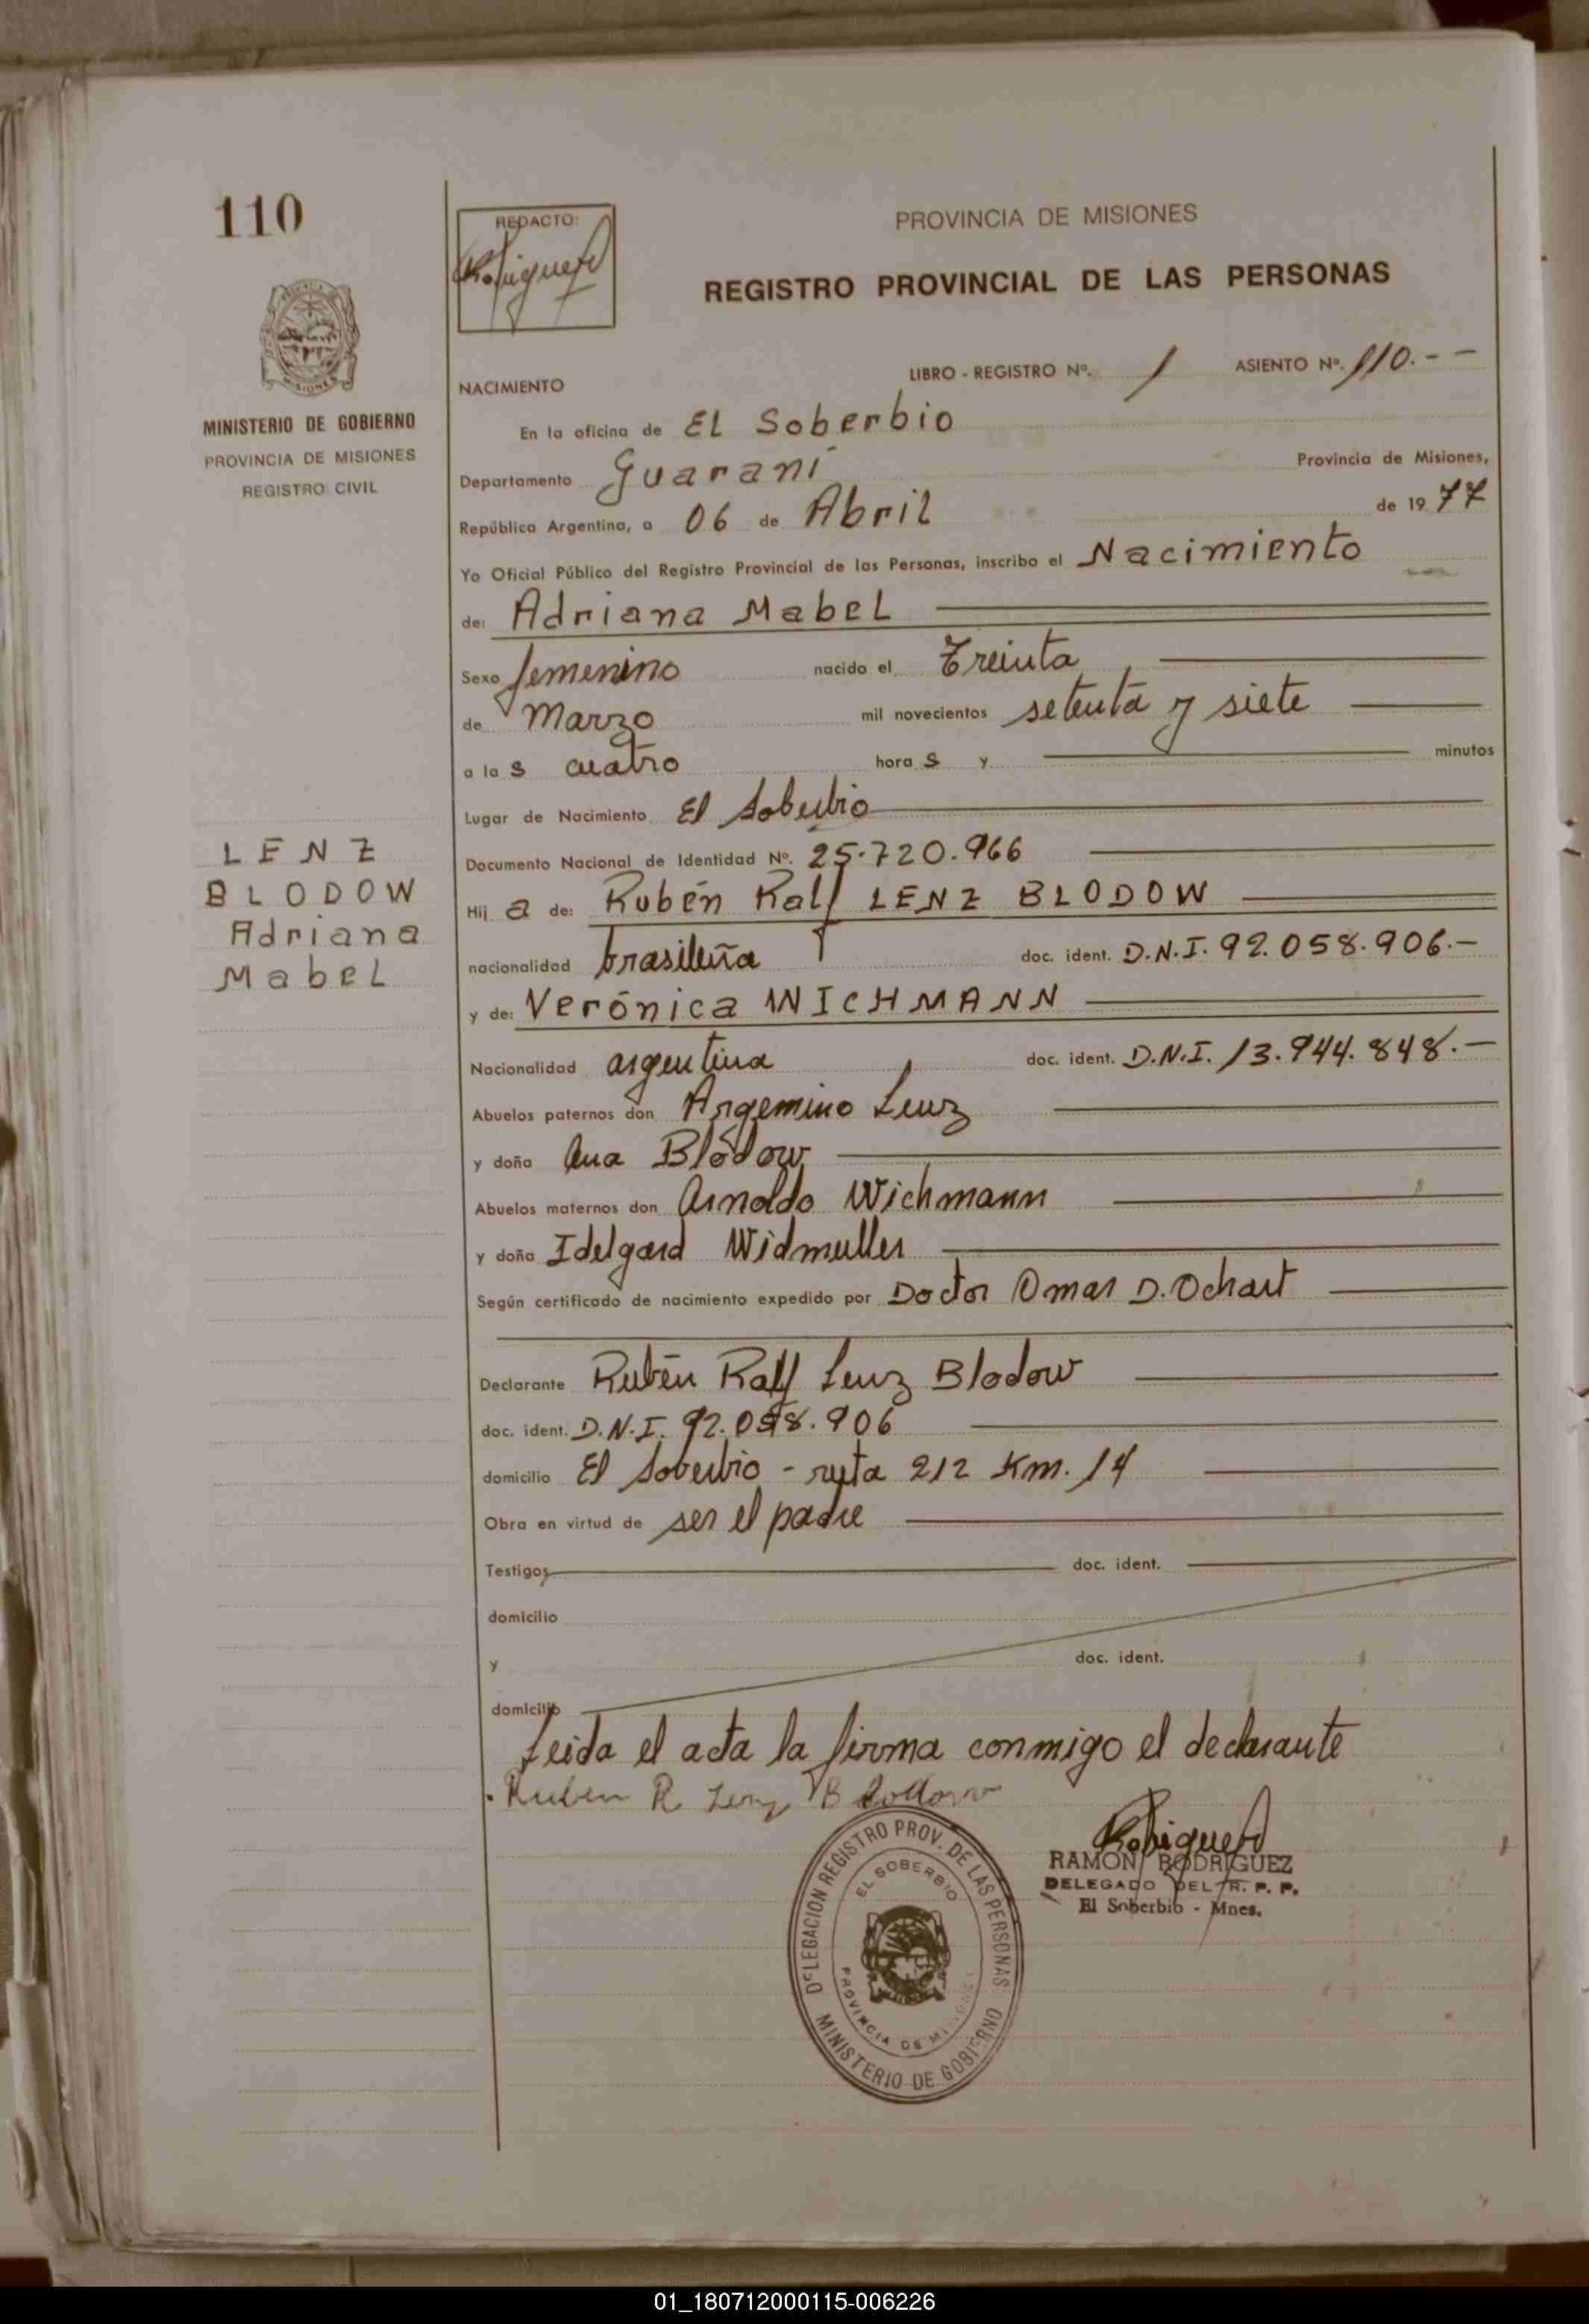 110
REDACTO:
PROVINCIA DE MISIONES
REGISTRO PROVINCIAL DE LAS PERSONAS
MISIONES
MINISTERIO DE GOBIERNO
PROVINCIA DE MISIONES
REGISTRO CIVIL
NACIMIENTO LIBRO - REGISTRO Nº. 1 ASIENTO Nº. 110.--
En la oficina de El Soberbio
Departamento Guaraní Provincia de Misiones,
República Argentina, a 06 de Abril de 1977
Yo Oficial Público del Registro Provincial de las Personas, inscribo el Nacimiento
de: Adriana Mabel
Sexo femenino nacido el Treinta
de Marzo mil novecientos setenta y siete
a las cuatro horas y minutos
Lugar de Nacimiento El Soberbio
LENZ
BLODOW
Adriana
Mabel
Documento Nacional de Identidad Nº. 25.720.966
Hija de: Rubén Ralf LENZ BLODOW
nacionalidad brasileña doc. ident. D.N.I. 92.058.906.-
y de: Verónica WICHMANN
Nacionalidad argentina doc. ident. D.N.I. 13.944.848.-
Abuelos paternos don Argemino Lenz
y doña Ana Blódow
Abuelos maternos don Arnoldo Wichmann
y doña Idelgard Widmuller
Según certificado de nacimiento expedido por Doctor Omar D. Ochart
Declarante Rubén Ralf Lenz Blodow
doc. ident. D.N.I. 92.058.906
domicilio El Soberbio - ruta 212 Km. 14
Obra en virtud de ser el padre
Testigos doc. ident.
domicilio
y doc. ident.
domicilio
Leida el acta la firma conmigo el declarante
Ruben R Lenz Blodow
RAMON RODRIGUEZ
DELEGADO DEL R. P. P.
El Soberbio - Mnes.
DELEGACION REGISTRO PROV. DE LAS PERSONAS
EL SOBERBIO
PROVINCIA DE MISIONES
MINISTERIO DE GOBIERNO
01_180712000115-006226